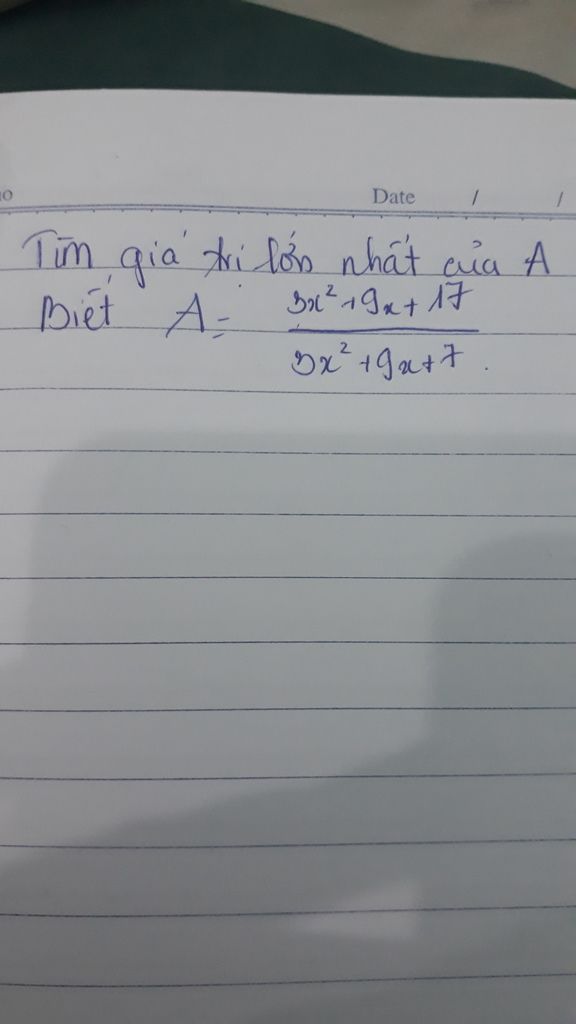 No
Date / /
Tìm giá trị lớn nhất của A
Biết A = \frac{3x²+9x+17}{3x²+9x+7}.